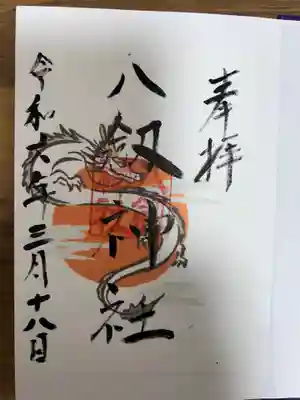 奉拝
八剱神社
令和六年三月十八日